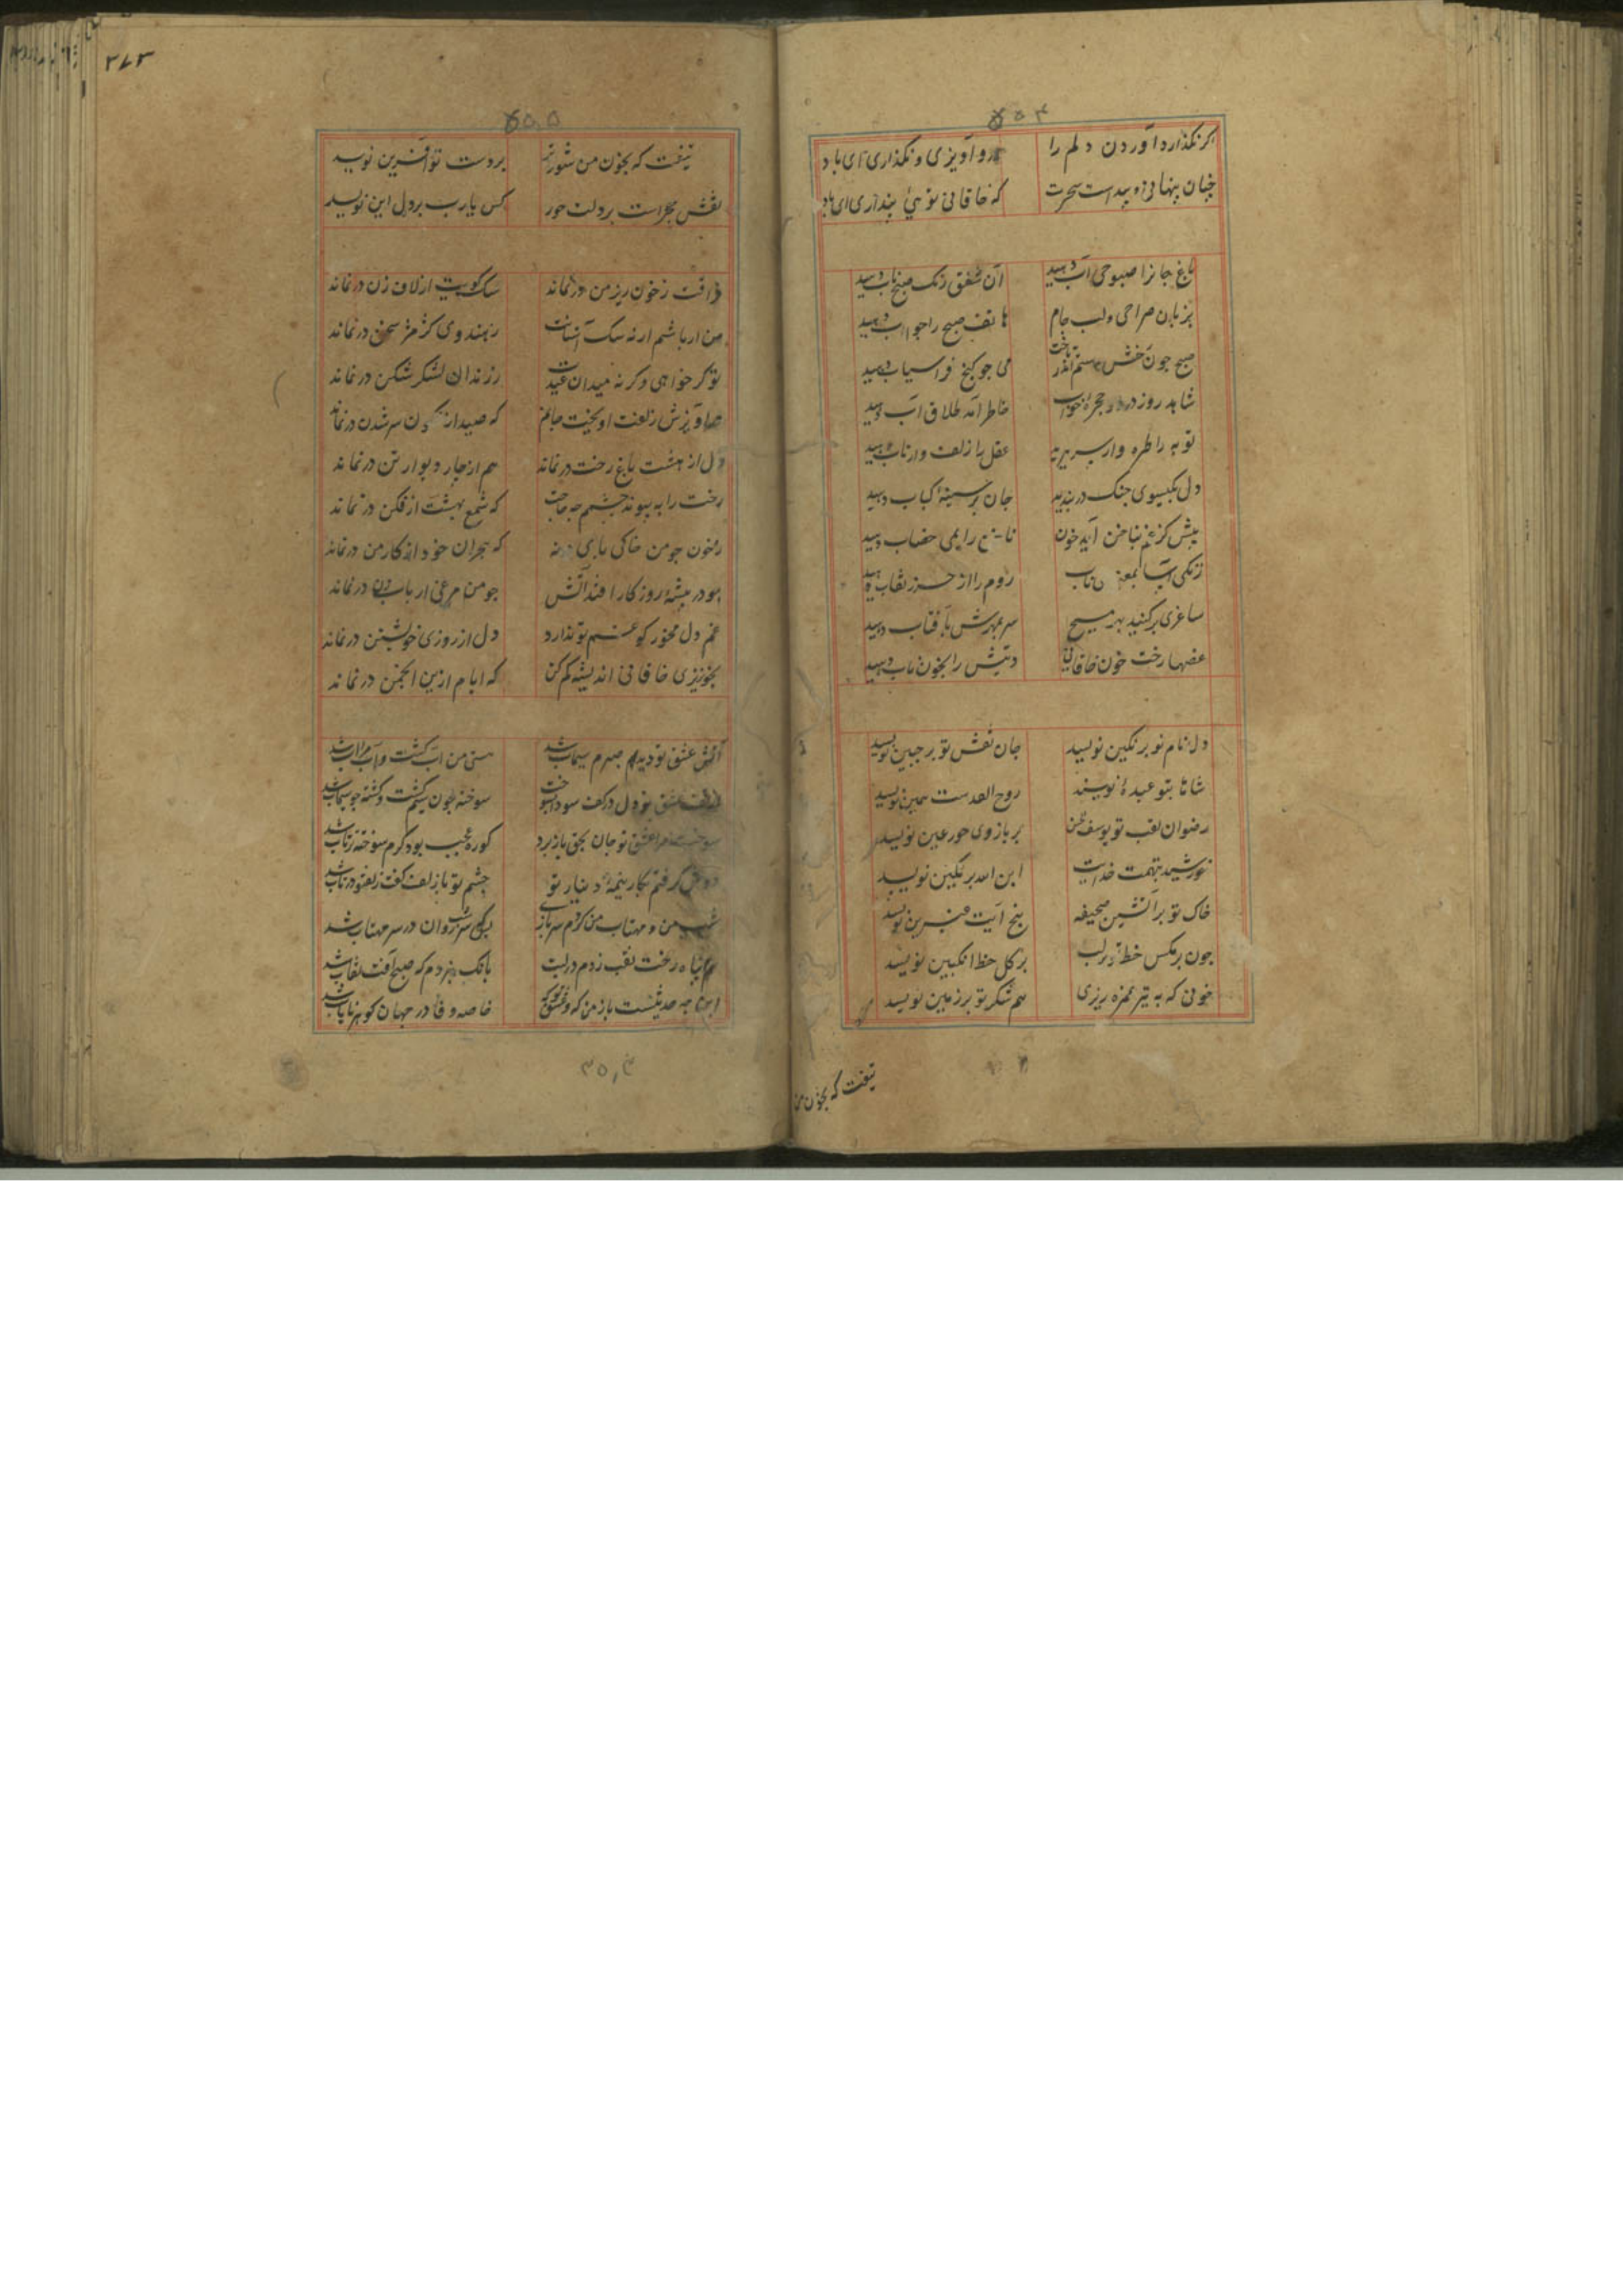 ۴۵۵
اکر نکذارد آوردن دلم را در و آویزی و نکذاری ای باد
چنان پنهانی و پیداست سحرت که خاقانی توئی پنداری ای باد
باغ جانرا صبوحی آب دهید آن شفق رنک صبح ناب دهید
بزبان صراحی و لب جام هاتف صبح را جواب دهید
صبح چون رخش رستم اندر تاخت می چو کنج فراسیاب دهید
شاهد روز در حجره خواب خاطر آمد طلاق آب دهید
توبه را طره وار سر ببرید عقل را زلف وار تاب دهید
دل بکیسوی چنک دربندید جان بر سینه کباب دهید
پیش کز غم بناخن آید خون ناخن را بمی خضاب دهید
زنکی آسا بمعنی روم را از خزر نقاب دهید
ساغری برکنید بهر مسیح سر بمهرش بآفتاب دهید
غصها ریخت خون خاقانی دیتش را بخون ناب دهید
دل نام تو بر نکین نویسد جان نقش تو بر جبین نویسد
شاها بتو عبده نویسند روح القدست همین نویسد
رضوان لقب تو یوسف حسن بر بازوی حور عین نویسد
خورشید بتهمت خدایت ابن الله بر نکین نویسد
خاک تو بر آتشین صحیفه پنج آیت عنبرین نویسد
چون بر مکس خط تو بر لب بر کل خط انکبین نویسد
خونی که به تیر غمزه ریزی هم شکر تو بر زمین نویسد
تیغت که بخون من
۳۷۳
۵۵,۵
تیغت که بخون من شود تر بر دست تو آفرین نویسد
نقش حجر است بر دلت جور کس یارب بر دل این نویسد
فراقت ز خون ریز من در نماند سک کویت از لاف زدن در نماند
من ار باشم ار نه سک آستانت ز هندوی کژمژ سخن در نماند
تو کر خواهی و کر نه میدان عیدت ز رندان لشکر شکن در نماند
هم آویزش زلفت آویخت جانم که صید از کردن سر شدن در نماند
دل از هشت باغ رخت در نماند هم از چار دیوار تن در نماند
رخت را به پیوند چشمم چه حاجت که شمع بهشت از لکن در نماند
بخون چو من خاکی که هجران خود از کار من در نماند
چو در بیشه روزکار افتد آتش چو من مرغی از بابزن در نماند
غم دل مخور کو غم تو ندارد دل از روزی خویشتن در نماند
بخونریزی خاقانی اندیشه کم کن که ایام ازین انجمن در نماند
آتش عشق تو دید صبرم سیماب شد هستی من آب کشت و آب مرا آب شد
از تف عشق تو دل در کف سودا بسوخت سوخته چون سیم کشت و کشته چو سیماب شد
سوخت مرا عشق تو جان بحق باز برد کوره عجب بود کرم سوخته زتاب شد
دوش کرفتم بکار نیمه دینار تو چشم تو با زلف کفت زلف تو در تاب شد
شب من و مهتاب من کردم سربازی برک سر شبروان در سر مهتاب شد
بناه رخت نقب زدم در لبت بانک بر زدم که صبح آفت نقاب شد
این چه حدیثست باز من که و عشوه که خاصه وفا در جهان کوهر نایاب شد
۳۵,۴